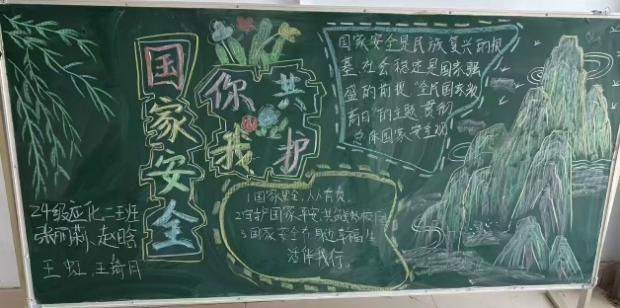 国家安全
你我共护
国家安全是民族复兴的根
基,社会稳定是国家强
盛的前提,全民国家安
教育日的主题 贯彻
总体国家安全观
1国家安全,人人有责。
2守护国家平安,共筑
3国家安全在身边幸福生
活伴我行。
24级应化二班
张丽莉、赵晗
王虹、王